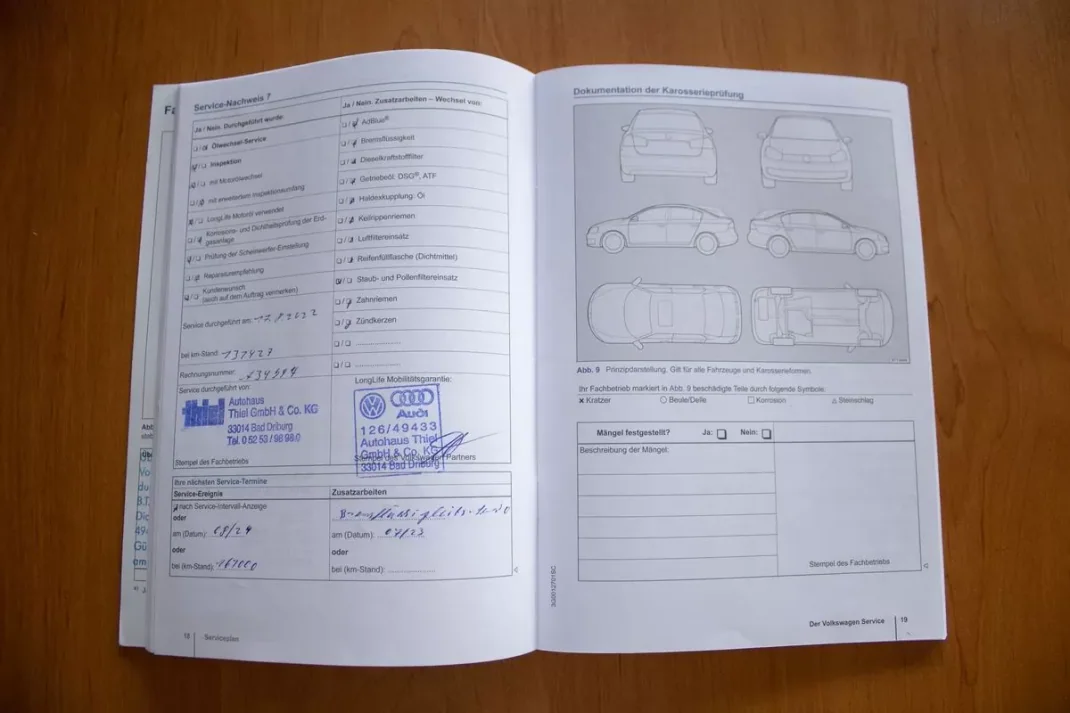 Service-Nachweis 7
Ja / Nein. Durchgeführt wurde:
Ölwechsel-Service
Inspektion
mit Motorölwechsel
mit erweitertem Inspektionsumfang
LongLife Motoröl verwendet
Korrosions- und Dichtheitsprüfung der Erd-
gasanlage
Prüfung der Scheinwerfer-Einstellung
Reparaturempfehlung
Kundenwunsch
(auch auf dem Auftrag vermerken)
Service durchgeführt am:
bei km-Stand: 137427
Rechnungsnummer:
Service durchgeführt von:
Autohaus
Thiel GmbH & Co. KG
33014 Bad Driburg
Tel. 0 52 53 / 98 98 0
Stempel des Fachbetriebs
Ja / Nein. Zusatzarbeiten – Wechsel von:
AdBlue®
Bremsflüssigkeit
Dieselkraftstofffilter
Getriebeöl: DSG®, ATF
Haldexkupplung: Öl
Keilrippenriemen
Luftfiltereinsatz
Reifenfüllflasche (Dichtmittel)
Staub- und Pollenfiltereinsatz
Zahnriemen
Zündkerzen
LongLife Mobilitätsgarantie:
Audi
126/49433
Autohaus Thiel
GmbH & Co. KG
33014 Bad Driburg
Stempel des Volkswagen Partners
Ihre nächsten Service-Termine
Service-Ereignis
nach Service-Intervall-Anzeige
oder
am (Datum): 08/24
oder
bei (km-Stand): 167000
Zusatzarbeiten
am (Datum): 07/23
oder
bei (km-Stand):
18 Serviceplan
Dokumentation der Karosserieprüfung
Abb. 9 Prinzipdarstellung. Gilt für alle Fahrzeuge und Karosserieformen.
Ihr Fachbetrieb markiert in Abb. 9 beschädigte Teile durch folgende Symbole:
x Kratzer ○ Beule/Delle □ Korrosion △ Steinschlag
Mängel festgestellt? Ja: Nein:
Beschreibung der Mängel:
Stempel des Fachbetriebs
Der Volkswagen Service 19